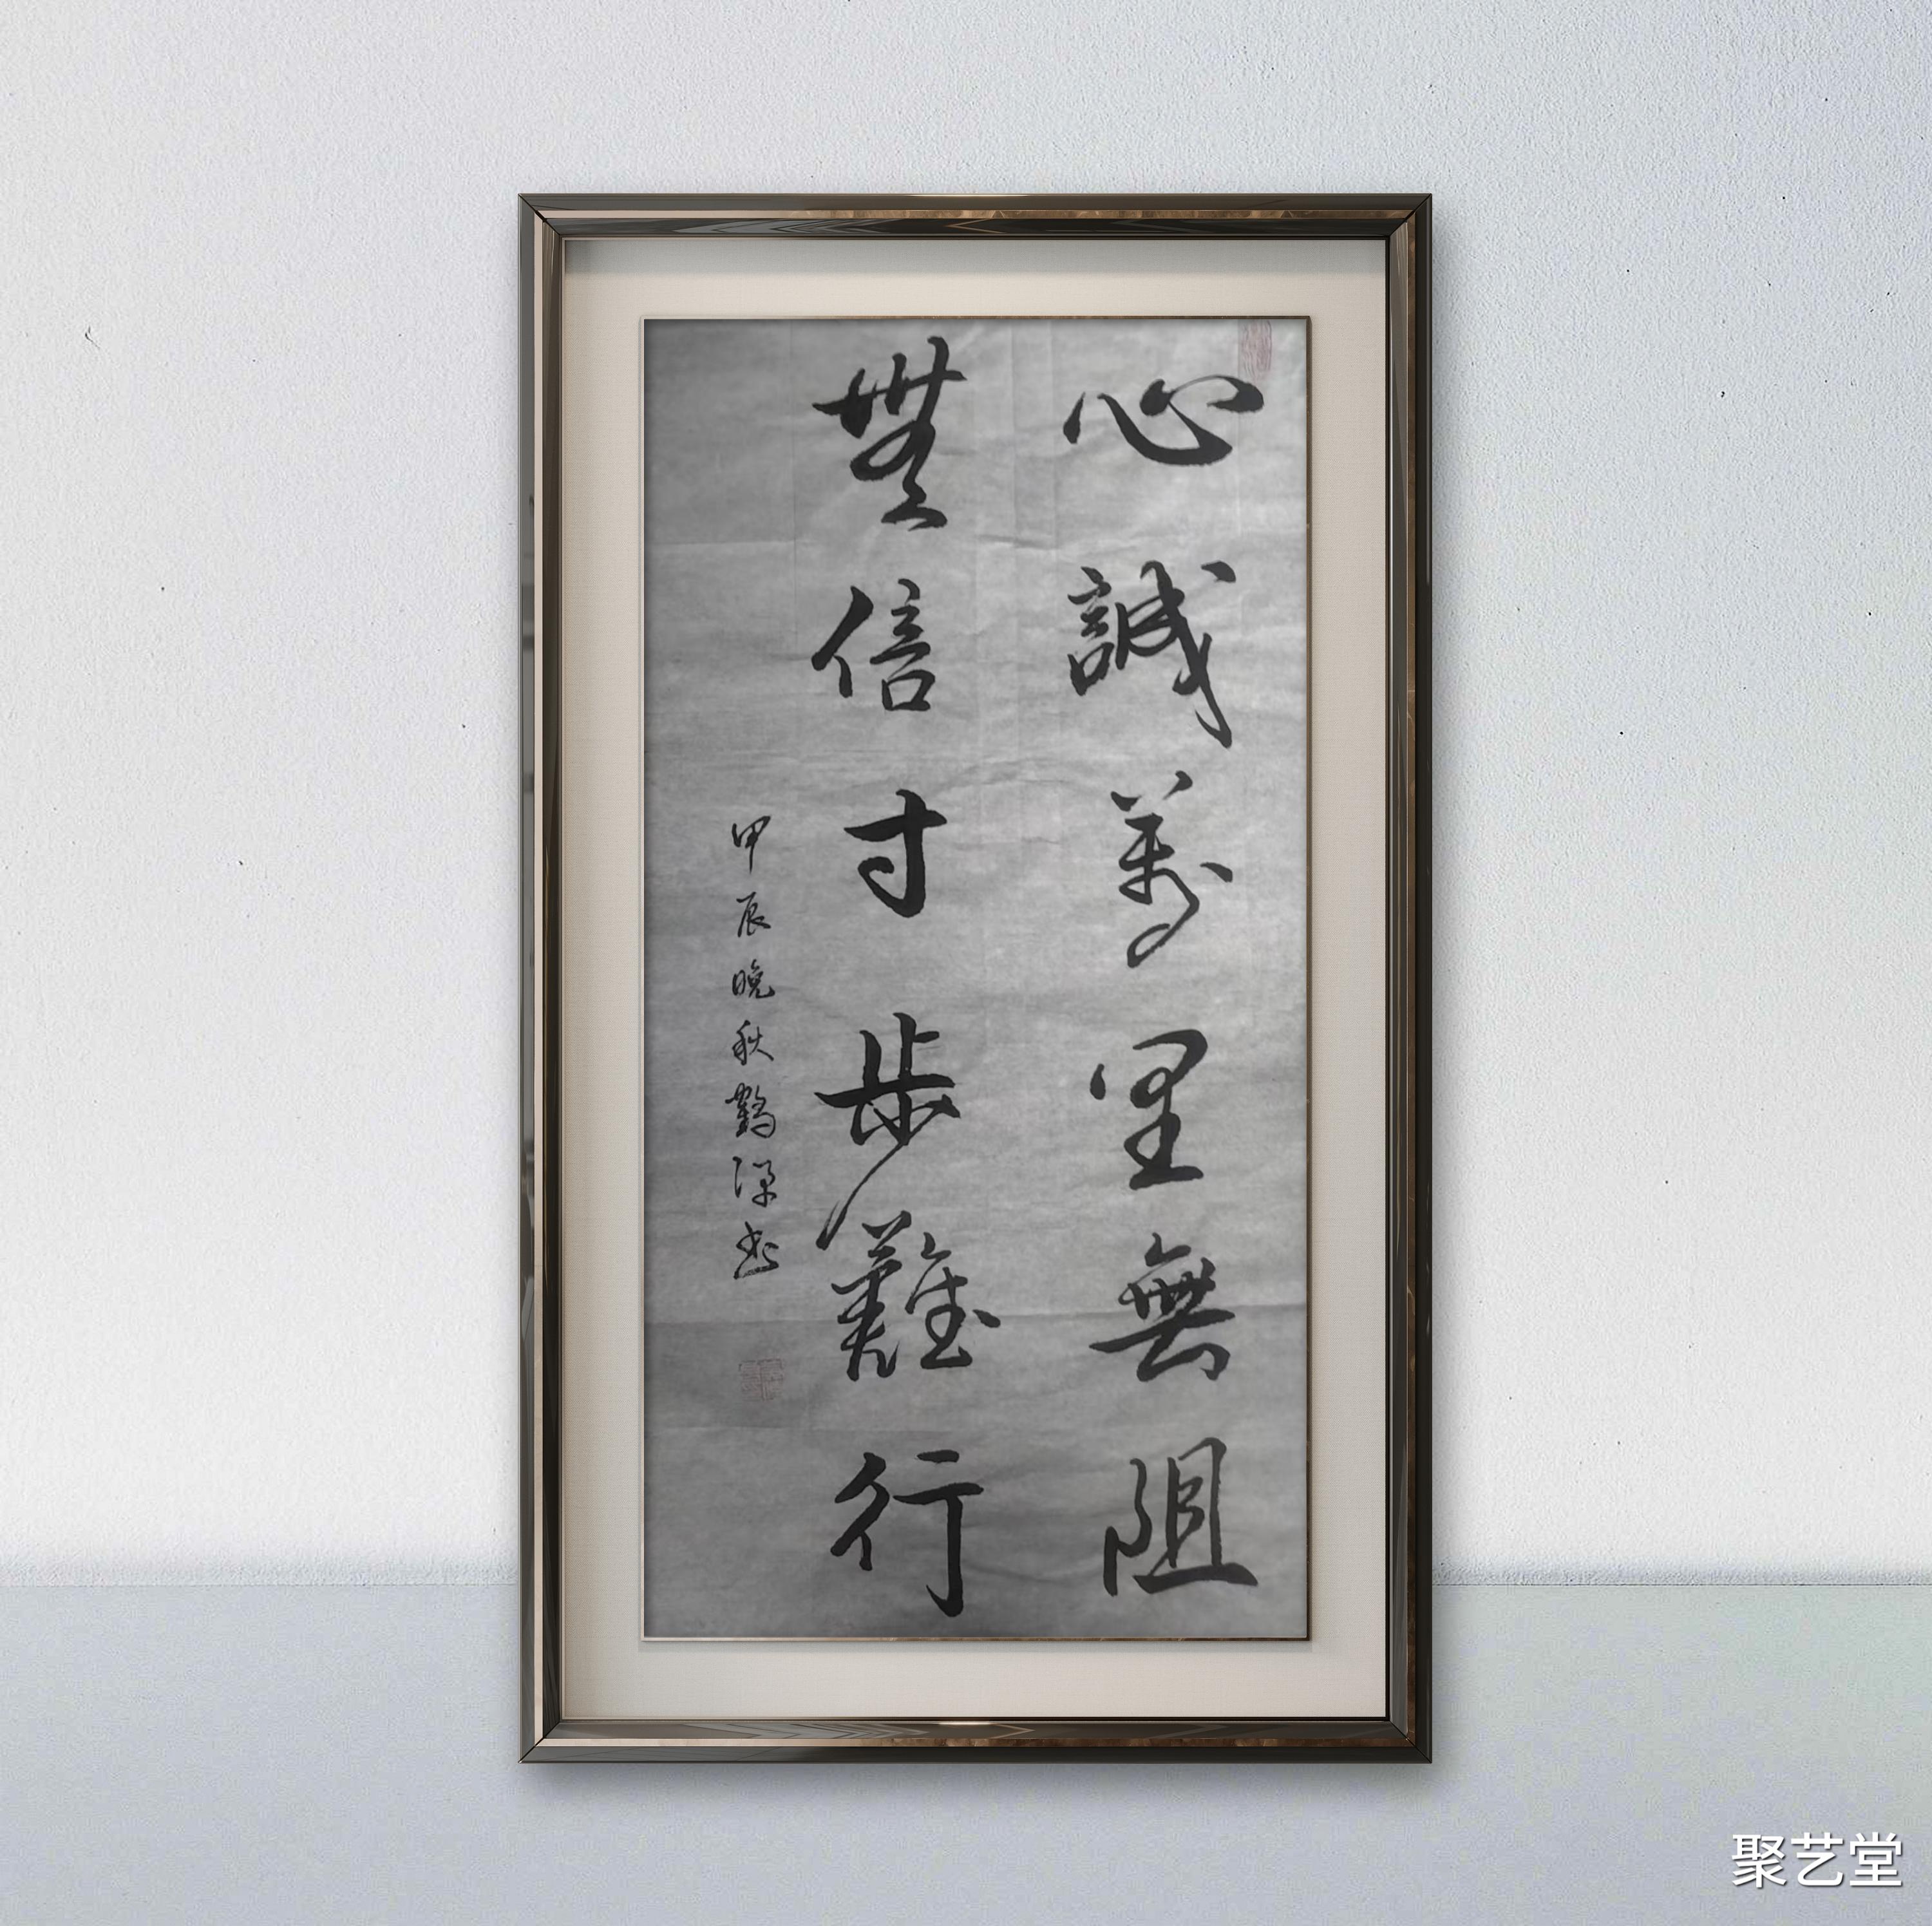 心誠萬里無阻
無信寸步難行
甲辰晚秋鶴潭書
聚艺堂